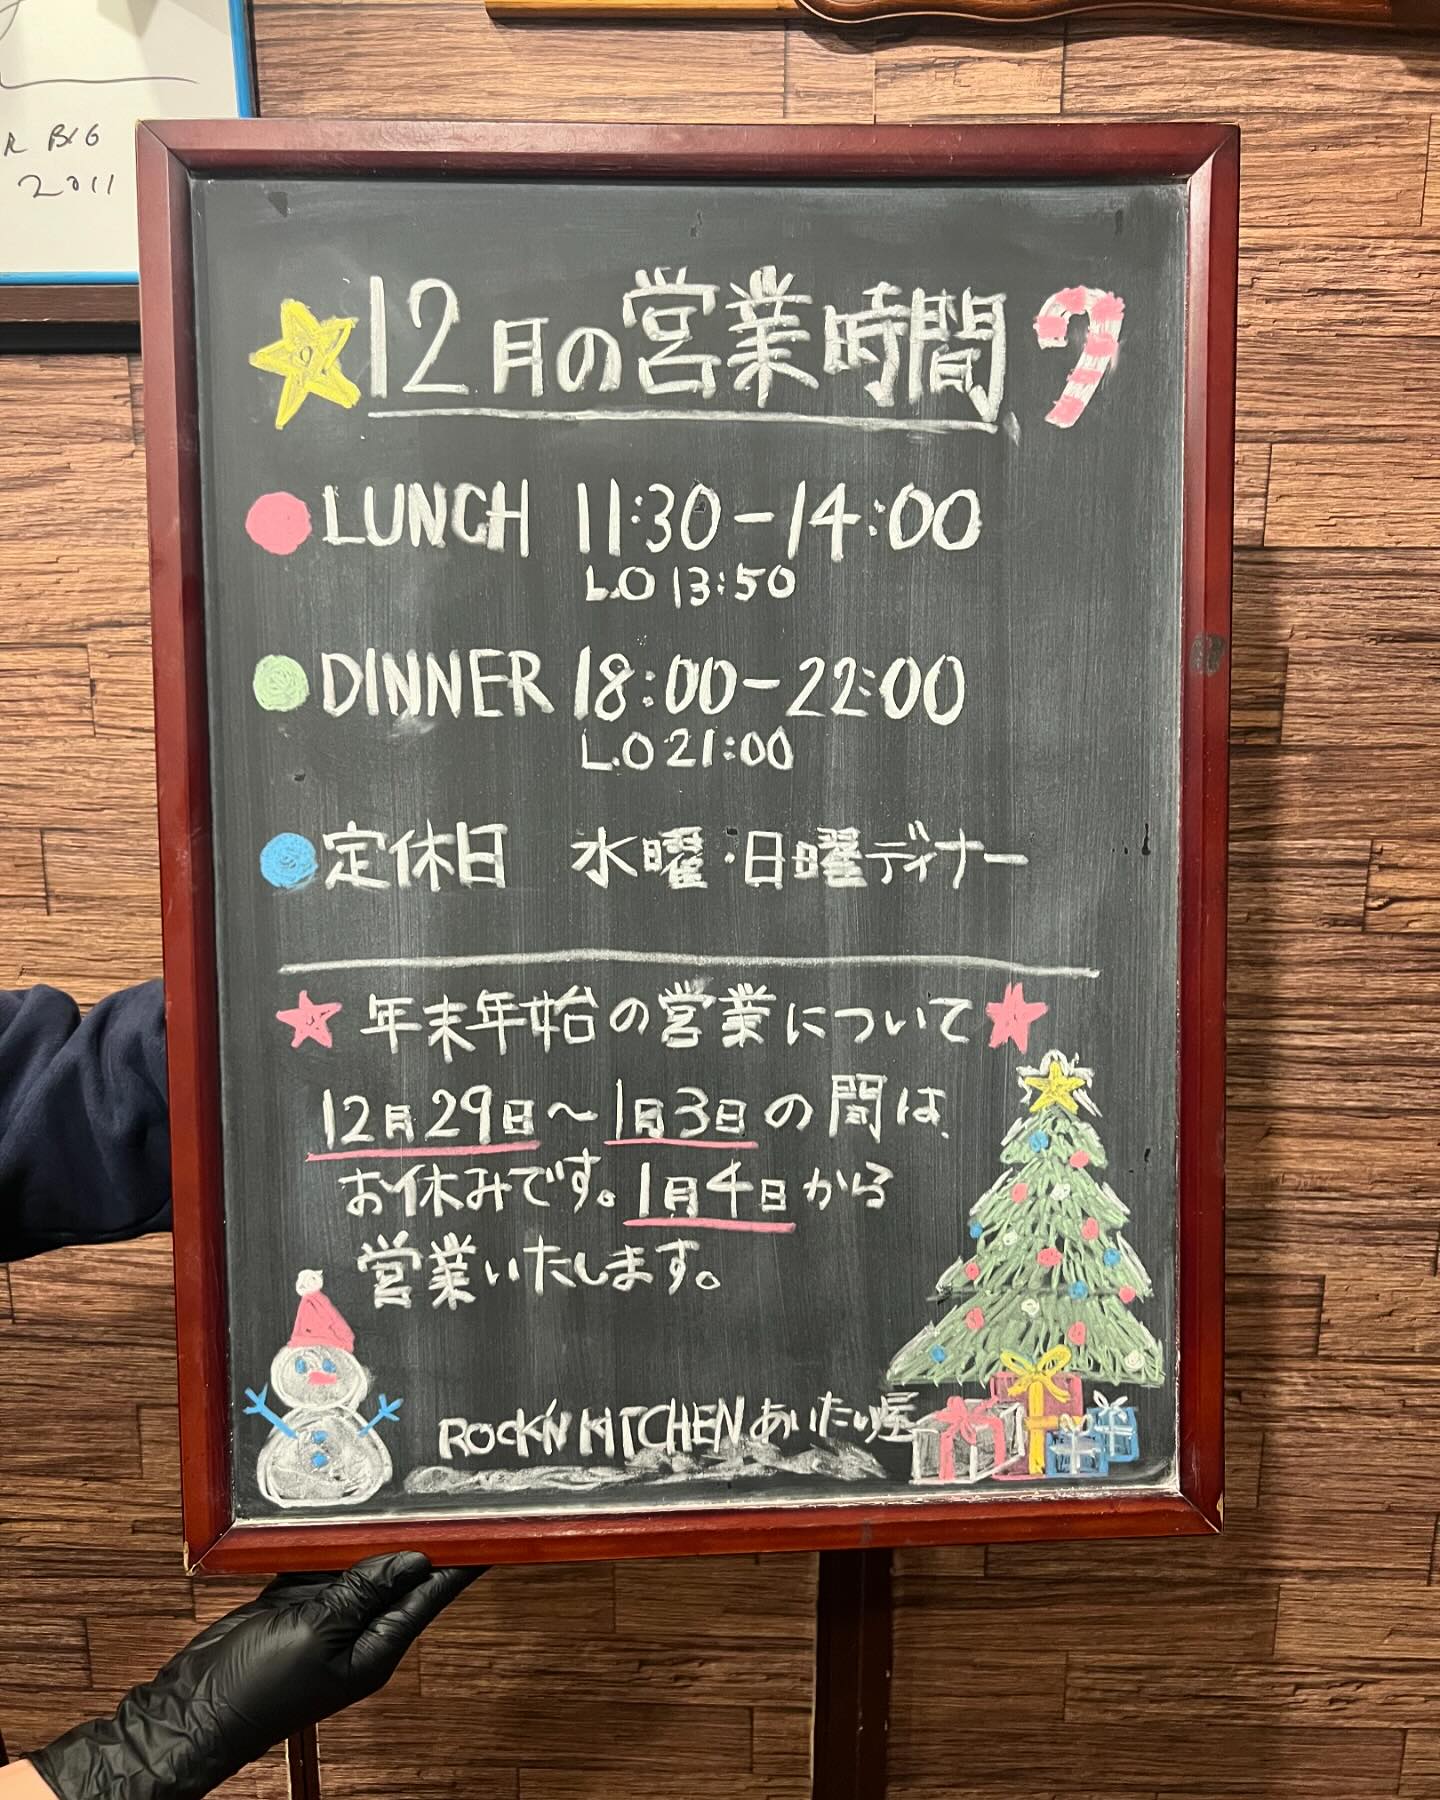 R BIG
2011
12月の営業時間
LUNCH 11:30-14:00
L.O 13:50
DINNER 18:00-22:00
L.O 21:00
定休日 水曜・日曜ディナー
年末年始の営業について
12月29日~1月3日の間は
お休みです。1月4日から
営業いたします。
ROCK'N KITCHENあいたい屋